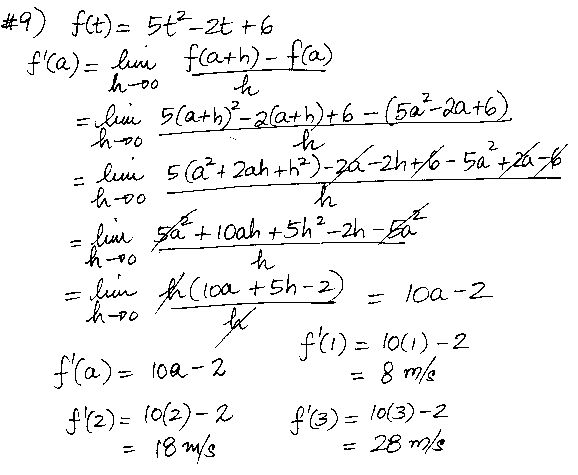 #9) f(t) = 5t²-2t+6
f'(a) = lim h→0 f(a+h) - f(a) / h
= lim h→0 5(a+h)²-2(a+h)+6 - (5a²-2a+6) / h
= lim h→0 5(a²+2ah+h²)-2a-2h+6-5a²+2a-6 / h
= lim h→0 5a²+10ah+5h²-2h-5a² / h
= lim h→0 h(10a+5h-2) / h = 10a-2
f'(a) = 10a-2
f'(1) = 10(1)-2
= 8 m/s
f'(2) = 10(2)-2
= 18 m/s
f'(3) = 10(3)-2
= 28 m/s